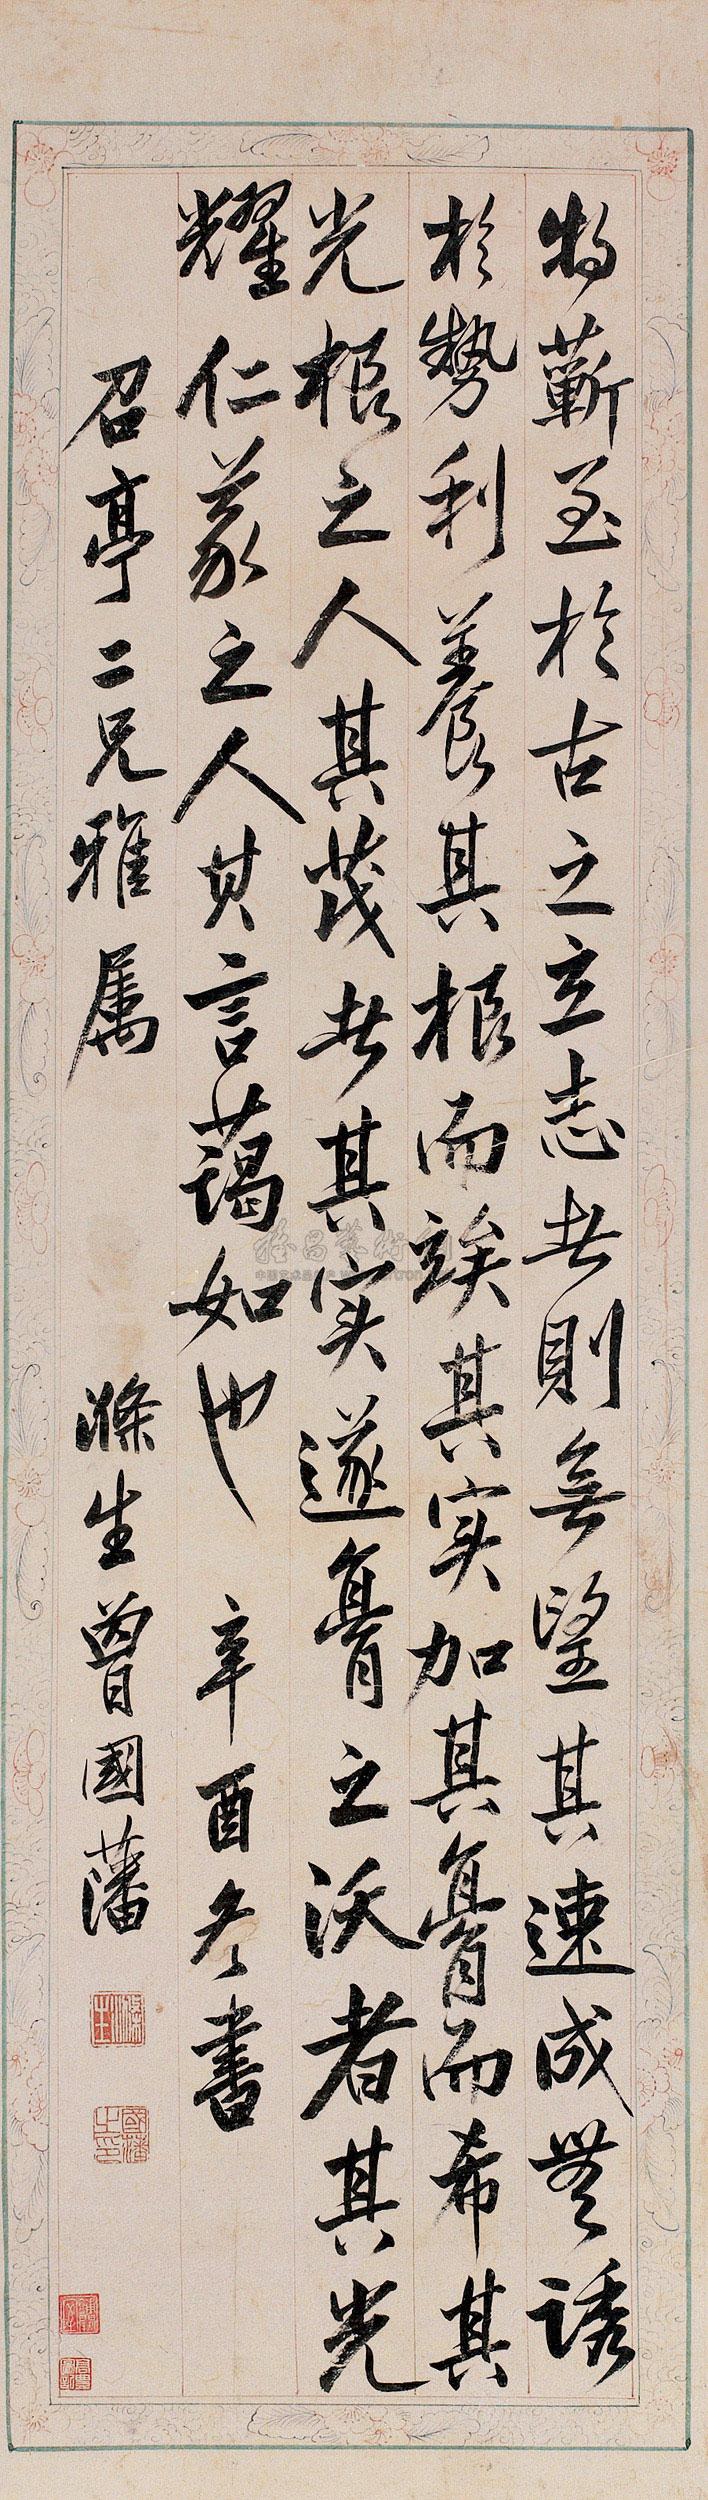 將蘄至於古之立志者則無望其速成無誘
於勢利養其根而竢其实加其膏而希其
光根之人其茂者其实遂膏之沃者其光
耀仁義之人其言藹如也 辛酉冬書
召亭二兄雅属 滌生曾國藩
滌生
國藩之印